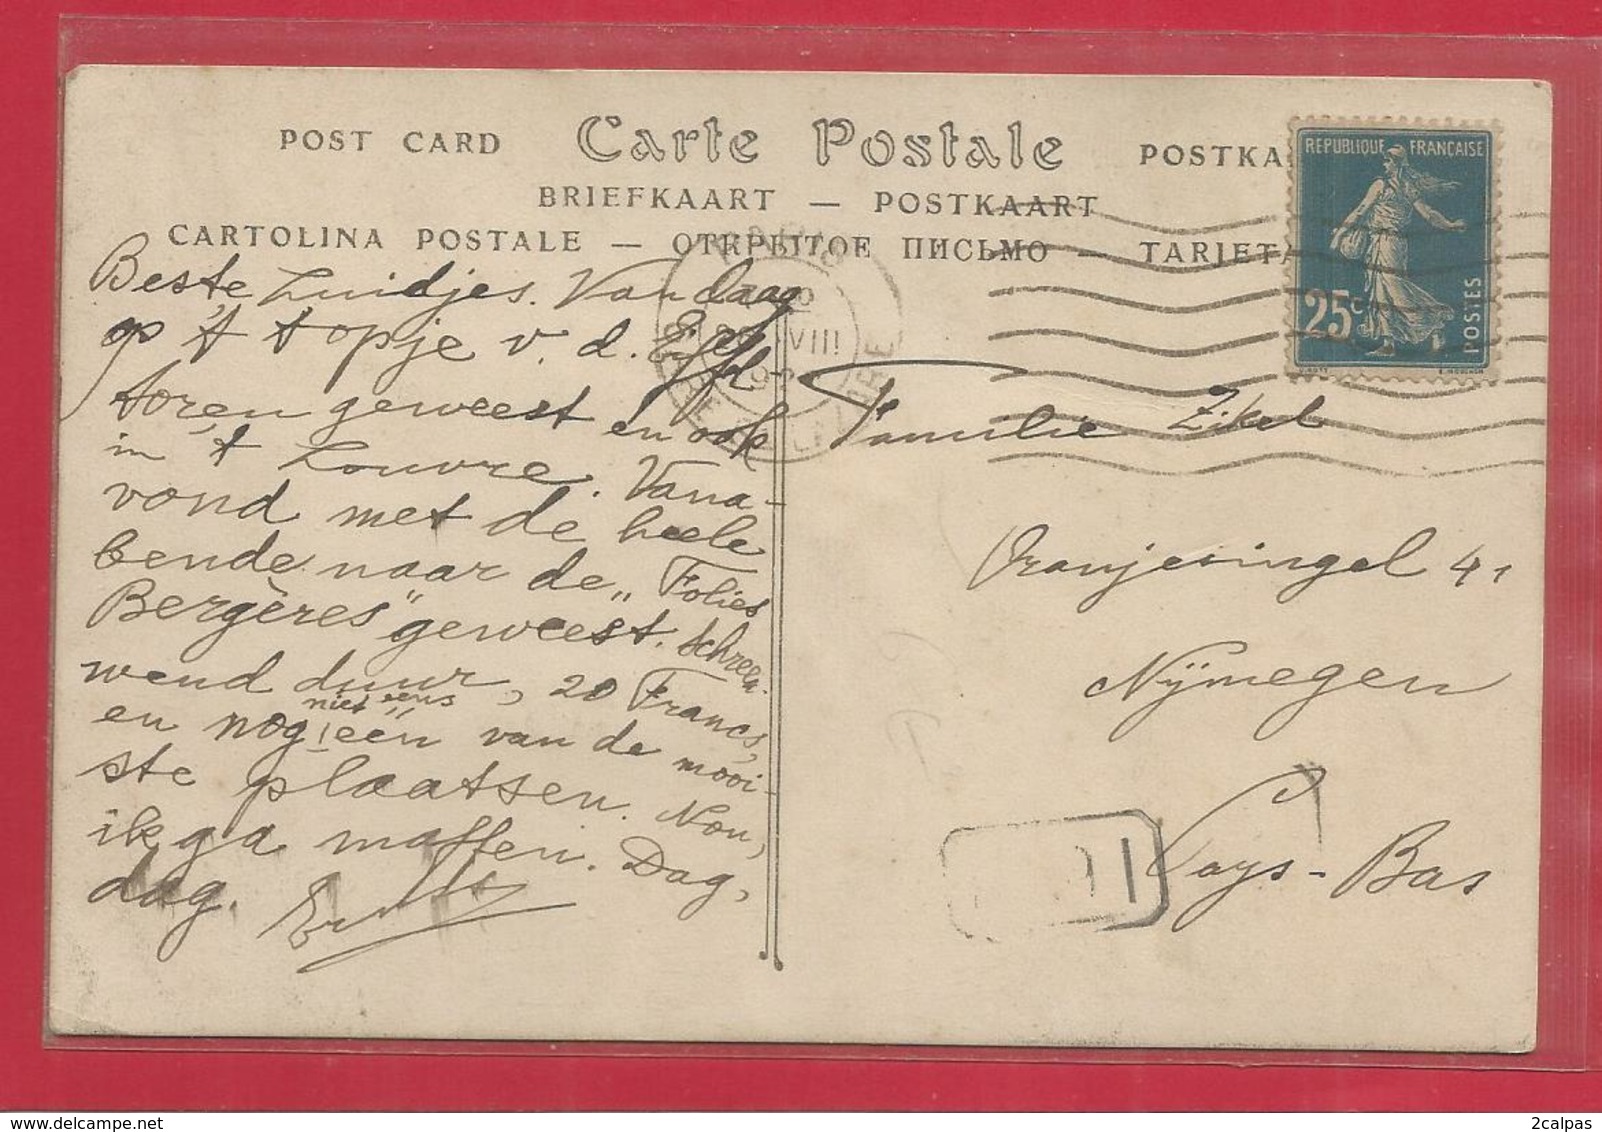 POST CARD Carte Postale POSTKA
BRIEFKAART — POSTKAART
CARTOLINA POSTALE — ОТКРЫТОЕ ПИСЬМО — TARJETA
REPUBLIQUE FRANÇAISE
25c
POSTES
VIII
Beste Luidjes. Vandaag
op 't topje v. d. Eiffel-
toren geweest en ook
in 't Louvre. Vana-
vond met de heele
bende naar de „Folies
Bergères" geweest. Schreeu-
wend duur, 20 Francs,
en nog niet eens één van de mooi-
ste plaatsen. Nou,
ik ga maffen. Dag,
dag.
Familie Zikel
Oranjesingel 41
Nijmegen
Pays-Bas
2calpas